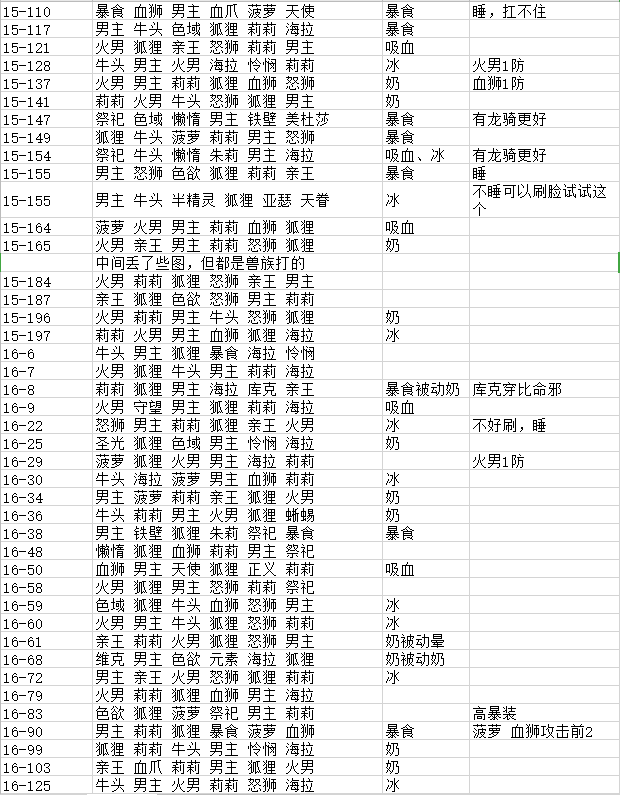 15-110 暴食 血狮 男主 血爪 菠萝 天使 暴食 睡，扛不住
15-117 男主 牛头 色域 狐狸 莉莉 海拉 暴食
15-121 火男 狐狸 亲王 怒狮 莉莉 男主 吸血
15-128 牛头 男主 火男 海拉 怜悯 莉莉 冰 火男1防
15-137 火男 男主 莉莉 狐狸 血狮 怒狮 奶 血狮1防
15-141 莉莉 火男 牛头 怒狮 狐狸 男主 奶
15-147 祭祀 色域 懒惰 男主 铁壁 美杜莎 暴食 有龙骑更好
15-149 狐狸 牛头 菠萝 莉莉 男主 怒狮 暴食
15-154 祭祀 牛头 懒惰 朱莉 男主 海拉 吸血、冰 有龙骑更好
15-155 男主 怒狮 色欲 狐狸 莉莉 亲王 暴食 睡
15-155 男主 牛头 半精灵 狐狸 亚瑟 天眷 冰 不睡可以刷脸试试这
个
15-164 菠萝 火男 男主 莉莉 血狮 狐狸 吸血
15-165 火男 亲王 男主 莉莉 怒狮 狐狸 奶
中间丢了些图，但都是兽族打的
15-184 火男 莉莉 狐狸 怒狮 亲王 男主
15-187 亲王 狐狸 色欲 怒狮 男主 莉莉
15-196 火男 莉莉 男主 牛头 怒狮 狐狸 奶
15-197 莉莉 火男 男主 血狮 狐狸 海拉 冰
16-6 牛头 男主 狐狸 暴食 海拉 怜悯
16-7 火男 狐狸 牛头 男主 莉莉 海拉
16-8 莉莉 狐狸 男主 海拉 库克 亲王 暴食被动奶 库克穿比命邪
16-9 火男 守望 男主 狐狸 莉莉 海拉 吸血
16-22 怒狮 男主 莉莉 狐狸 亲王 火男 冰 不好刷，睡
16-25 圣光 狐狸 色域 男主 怜悯 海拉 奶
16-29 菠萝 狐狸 火男 男主 海拉 莉莉 火男1防
16-30 牛头 海拉 菠萝 男主 血狮 莉莉 冰
16-34 男主 菠萝 莉莉 亲王 狐狸 火男 奶
16-36 牛头 莉莉 男主 火男 狐狸 蜥蜴 奶
16-38 男主 铁壁 狐狸 朱莉 祭祀 暴食 暴食
16-48 懒惰 狐狸 血狮 莉莉 男主 祭祀
16-50 血狮 男主 天使 狐狸 正义 莉莉 吸血
16-58 火男 狐狸 男主 怒狮 莉莉 祭祀
16-59 色域 狐狸 牛头 血狮 怒狮 男主 冰
16-60 火男 男主 牛头 狐狸 怒狮 莉莉 冰
16-61 亲王 莉莉 火男 狐狸 怒狮 男主 奶被动晕
16-68 维克 男主 色欲 元素 海拉 狐狸 奶被动奶
16-72 男主 亲王 火男 怒狮 狐狸 莉莉 冰
16-79 火男 莉莉 狐狸 血狮 男主 海拉
16-83 色欲 狐狸 菠萝 祭祀 男主 莉莉 高暴装
16-90 男主 莉莉 狐狸 暴食 菠萝 血狮 暴食 菠萝 血狮攻击前2
16-99 狐狸 莉莉 牛头 男主 怜悯 海拉 奶
16-103 亲王 血爪 莉莉 男主 狐狸 火男 奶
16-125 牛头 男主 火男 莉莉 怒狮 海拉 冰